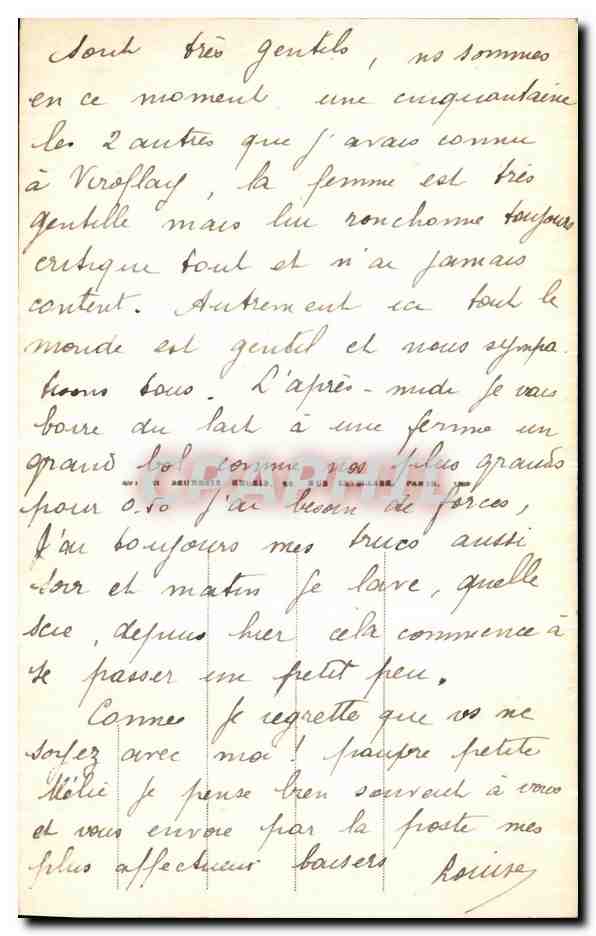 sont très gentils, ns sommes
en ce moment une cinquantaine
les 2 autres que j'avais connu
à Viroflay, la femme est très
gentille mais lui ronchonne toujours
critique tout et n'ai jamais
content. Autrement ici tout le
monde est gentil et nous sympa
tisons tous. L'après-midi je vais
boire du lait à une ferme un
grand bol comme nos plus grands
pour 0.50 j'ai besoin de forces,
J'ai toujours mes trucs aussi
soir et matin je lave, quelle
scie, depuis hier cela commence à
se passer un petit peu.
Comme je regrette que vs ne
soyez avec moi! pauvre petite
Mélie je pense bien souvent à vous
et vous envoie par la poste mes
plus affectueux baisers Louise